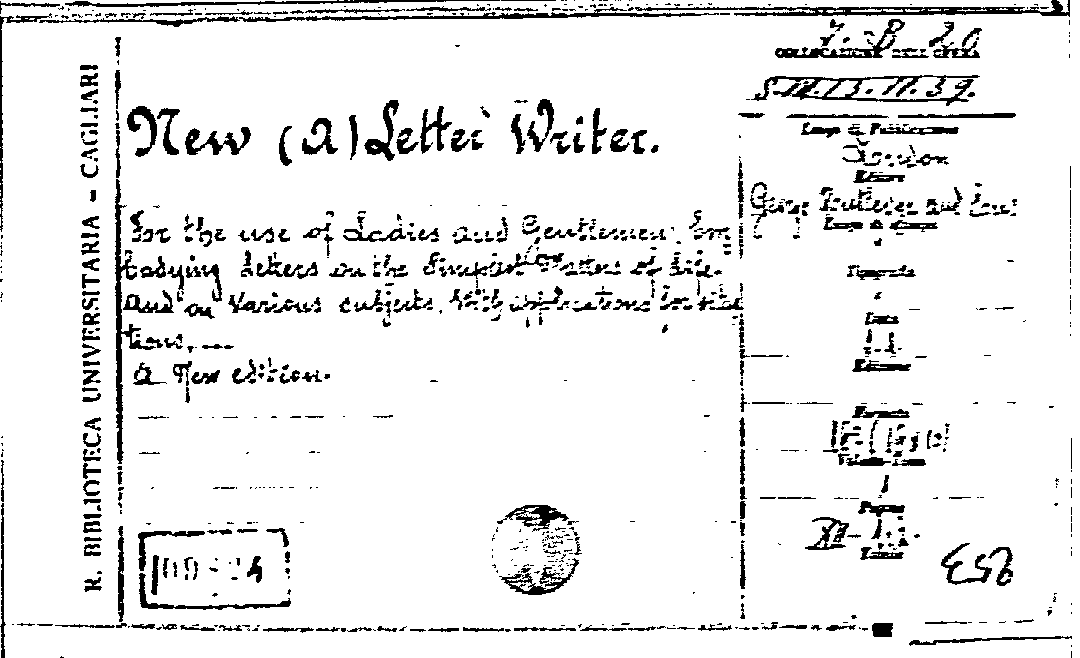 R. BIBLIOTECA UNIVERSITARIA - CAGLIARI
7. B. 20
COLLOCAZIONE DELL'OPERA
S.III.13.11.39.
New (a) Letter Writer.
Luogo di Pubblicazione
London
Editore
George Routledge and Sons
Luogo di stampa
For the use of Ladies and Gentlemen: Em
bodying Letters on the Simplest Matters of Life.
and on Various subjects. With applications for situa
tions, ...
A New edition.
Tipografia
Data
Edizione
Formato
Pagine
XII-